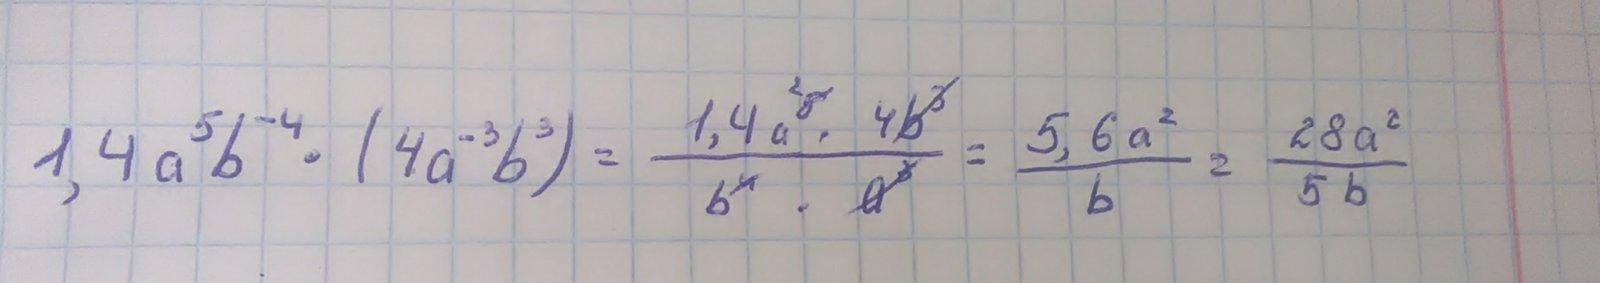 1,4a⁵b⁻⁴ · (4a⁻³b³) = (1,4a⁵² · 4b³)/(b⁴ · a³) = 5,6a²/b = 28a²/5b